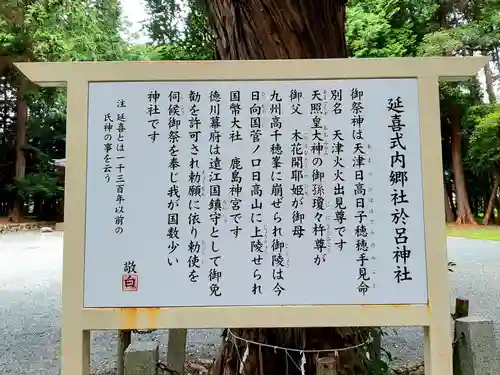 延喜式内郷社於呂神社
御祭神は天津日高日子穂穂手見命
別名　天津火火出見尊です
天照皇大神の御孫瓊々杵尊が
御父　木花開耶姫が御母
九州高千穂峯に崩ぜられ御陵は今
日向国菅ノ口日高山に上陵せられ
国幣大社　鹿島神宮です
徳川幕府は遠江国鎮守として御免
勧を許可され勅諚に依り勅使を
伺候御祭を奉じ我が国数少い
神社です
注　延喜とは一千三百年以前の
氏神の事を云う
敬白